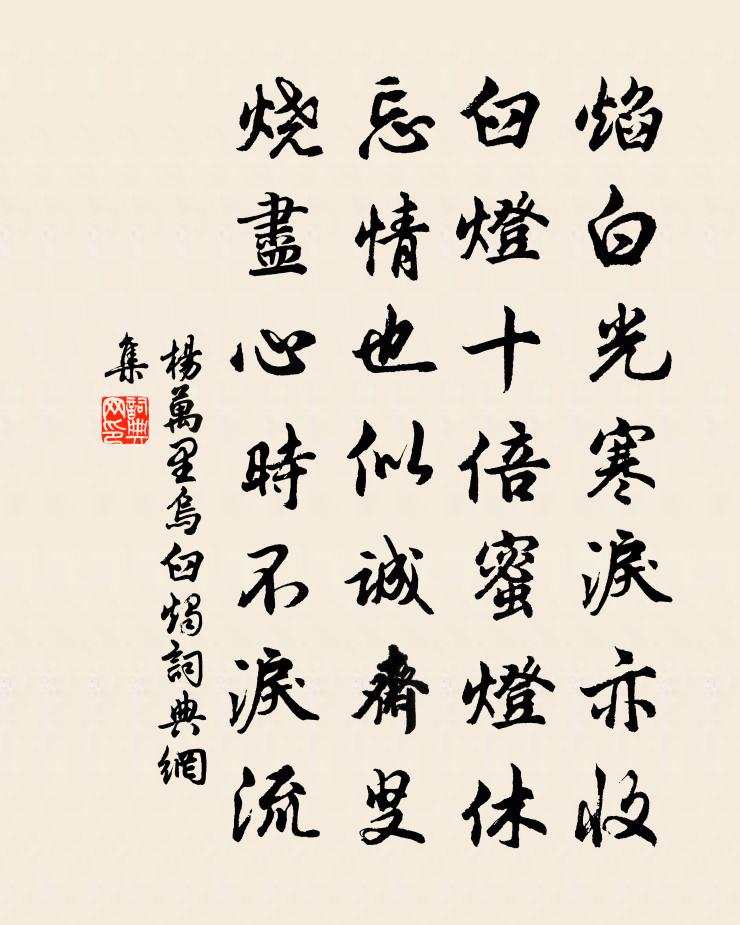 焰白光寒淚亦收
臼燈十倍蜜燈休
忘情也似誠齋叟
燒盡心時不淚流
楊萬里烏臼燭詞典網
集
詞典
网印